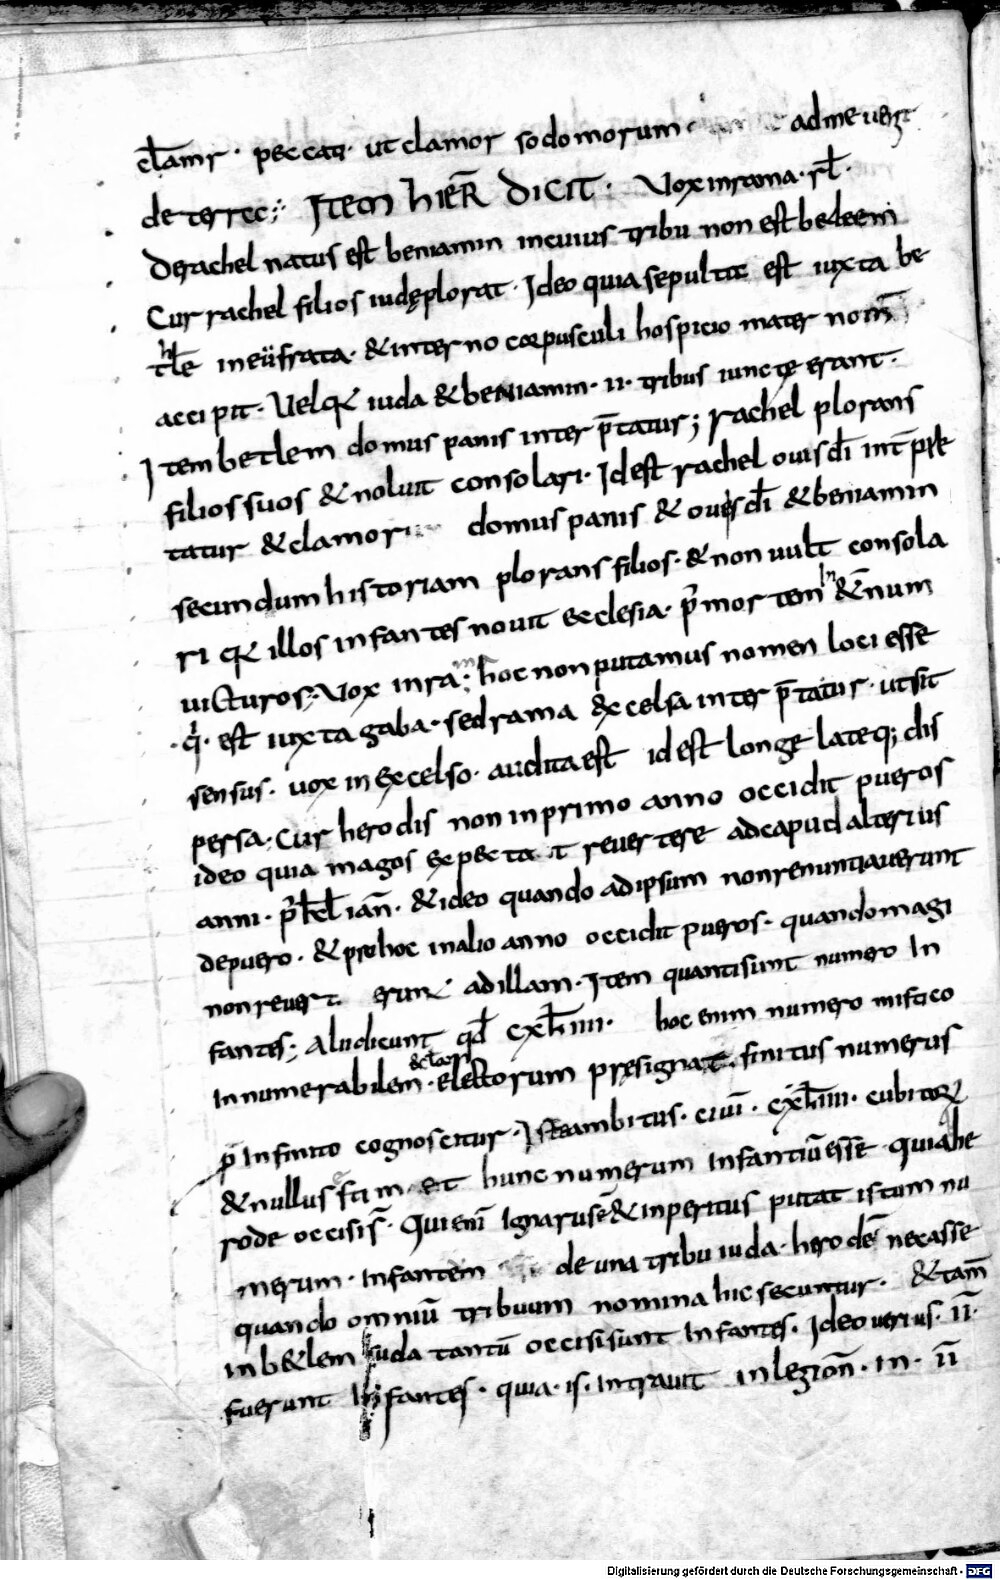 cl̄amr · peccati · ut clamor sodomorum · ad me uenit
de terrec; Item hier̄ dicit · Uox in rama · rl̄ ·
De rachel natus est beniamin in cuius tribu non est betleem
Cur rachel filios iudę plorat · Ideo quia sepulta est iuxta be
thłe in eüfrata · & interno corpusculi hospicio mater nom̄
accipit · Uel q& iuda & beniamin · ii · tribus iuncte erant ·
Item betlem domus panis inter p̄tatur; rachel plorans
filios suos & noluit consolari · Id est rachel ouis dī int̄ p̄&
tatur & clamor domus panis & oues dī & beniamin
secundum historiam plorans filios · & non uult consola
ri q& illos infantes nouit ecclesia · p̄ mortem hn̄ & ęnum
uicturos; Uox in rama; hoc non putamus nomen loci esse
· q̄ · est iuxta gaba · sed rama excelsa inter p̄tatur · ut sit
sensus · uox in excelso · audita est id est longe late q; dis
persa · Cur herodis non in primo anno occidit pueros
ideo quia magos expecta t reuertere ad caput alterius
anni · & ideo quando ad ipsum non renuntiauerunt
de puero · & pro hoc in alio anno occidit pueros · quando magi
non reuert erunt ad illam · Item quanti sunt numero In
fantes; Alii dicunt qđ cxłiiii · hoc enim numero mistico
Innumerabilem · electorum pręsignat · finitus numerus
p̄ Infinito cognoscitur · ambitus · ciui · cxłiiii · cubitorum
& nullus et hunc numerum Infantiū esse · quia he
rode occisis · Qui enī Ignarus ē & inperitus putat istum nu
merum · Infantem de una tribu iuda · herodē necasse
quando omniū tribuum nomina hic secuntur · & tam̄
in b&lem iuda tantū occisi sunt Infantes · Ideo uerius · ii ·
fuerunt Infantes · quia · is · Intrauit in legion̄ · In · ii
Digitalisierung gefördert durch die Deutsche Forschungsgemeinschaft - DFG